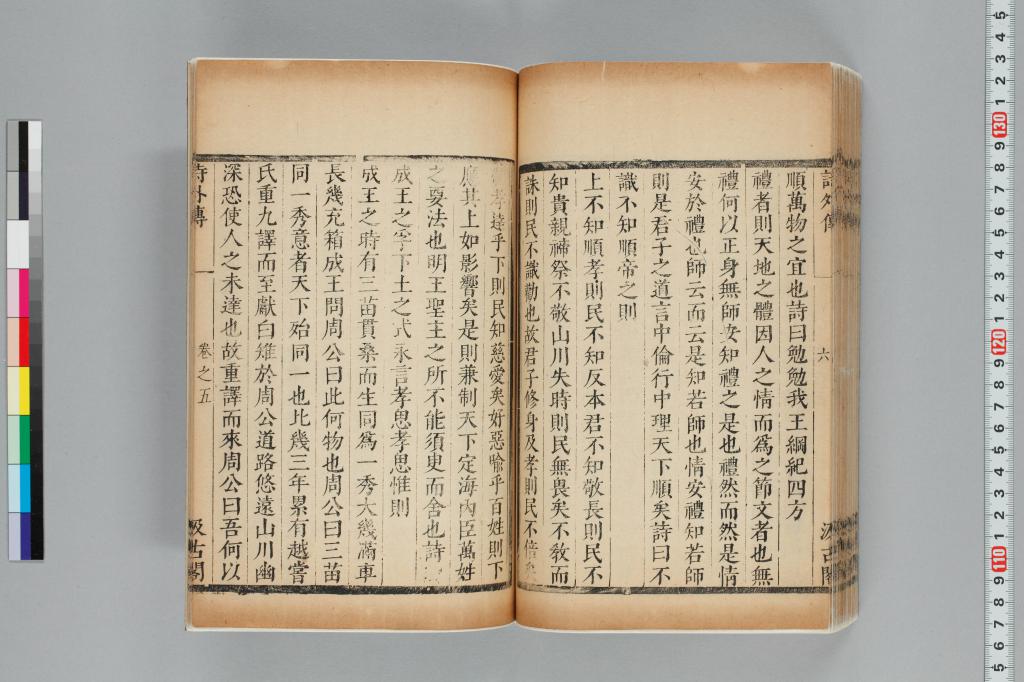 詩外傳
六
汲古閣
順萬物之宜也詩曰勉勉我王綱紀四方
禮者則天地之體因人之情而爲之節文者也無
禮何以正身無師安知禮之是也禮然而然是情
安於禮也師云而云是知若師也情安禮知若師
則是君子之道言中倫行中理天下順矣詩曰不
識不知順帝之則
上不知順孝則民不知反本君不知敬長則民不
知貴親禘祭不敬山川失時則民無畏矣不敎而
誅則民不識勸也故君子修身及孝則民不倍矣
孝達乎下則民知慈愛矣好惡喻乎百姓則下
應其上如影響矣是則兼制天下定海內臣萬姓
之要法也明王聖主之所不能須臾而舍也詩
成王之孚下土之式永言孝思孝思惟則
成王之時有三苗貫桑而生同爲一秀大幾滿車
長幾充箱成王問周公曰此何物也周公曰三苗
同一秀意者天下殆同一也比幾三年累有越嘗
氏重九譯而至獻白雉於周公道路悠遠山川幽
深恐使人之未達也故重譯而來周公曰吾何以
詩外傳
卷之五
汲古閣
5
4
3
2
1
130
9
8
7
6
5
4
3
2
1
120
9
8
7
6
5
4
3
2
1
110
9
8
7
6
5